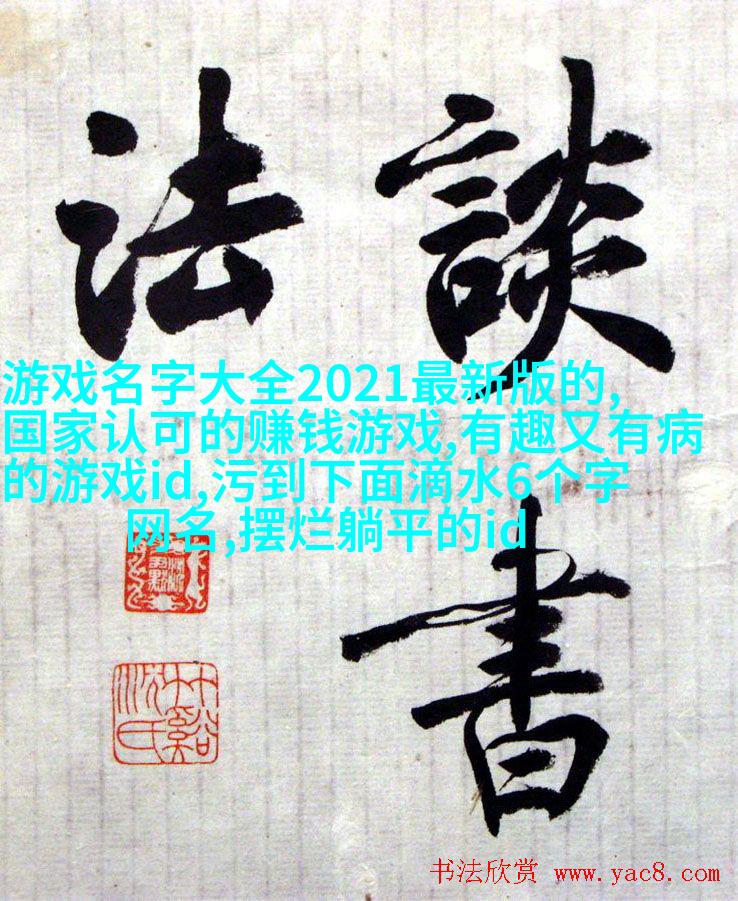 談書
法
游戏名字大全2021最新版的,
国家认可的赚钱游戏,有趣又有病
的游戏id,污到下面滴水6个字
网名,摆烂躺平的id
书法欣赏 www.yac8.com